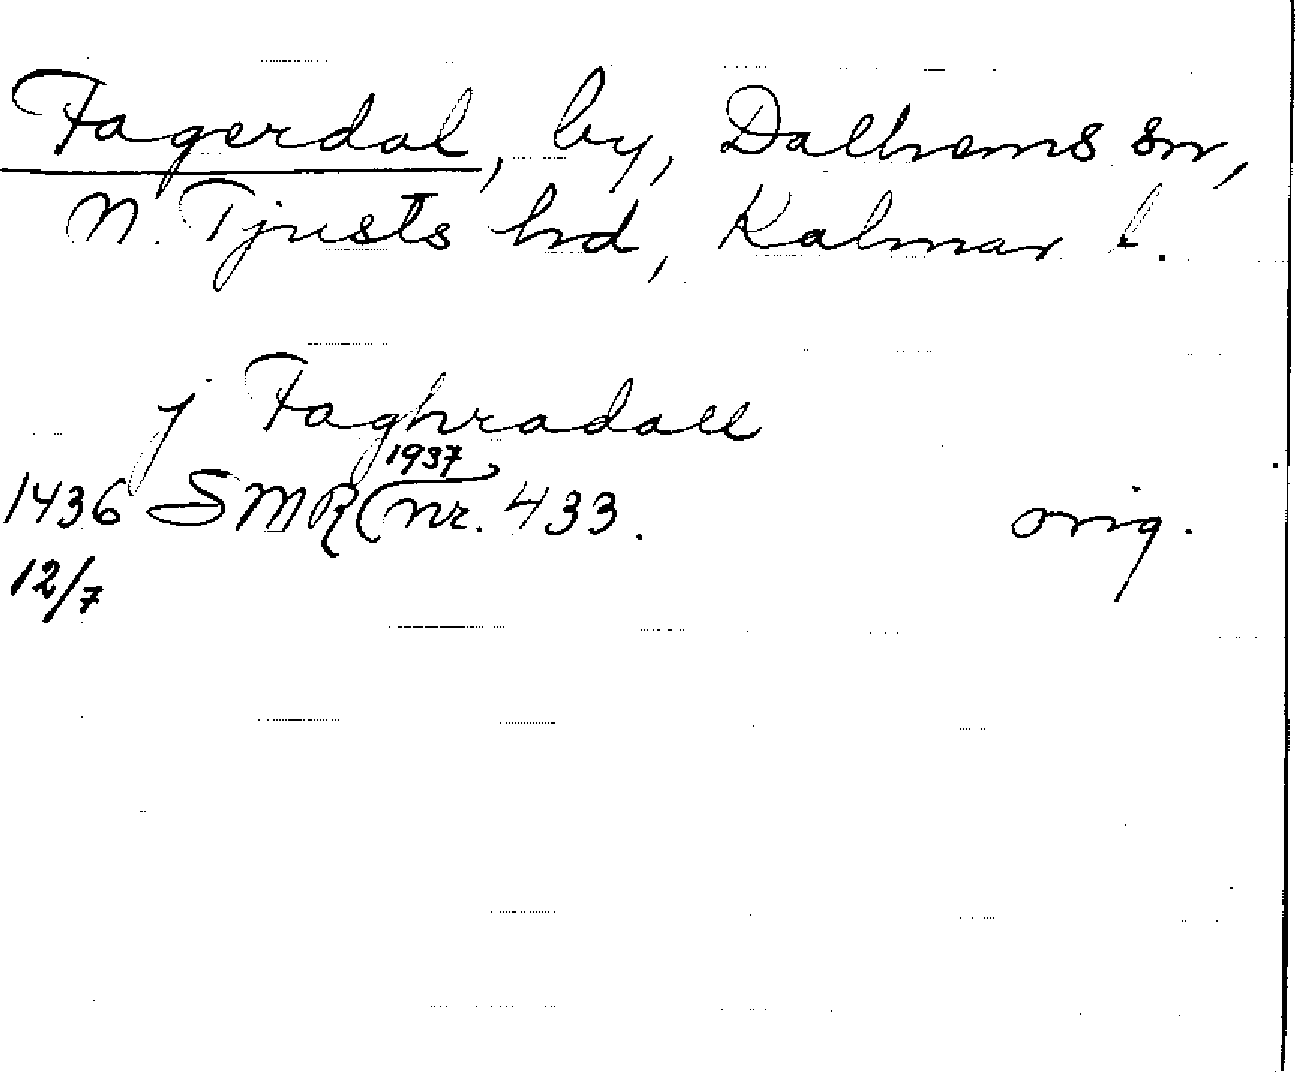 Fagerdal, by, Dalhems sn,
N. Tjusts hd, Kalmar l.
j Faghradall
1937
1436 SMR (nr. 433. orig.
12/7